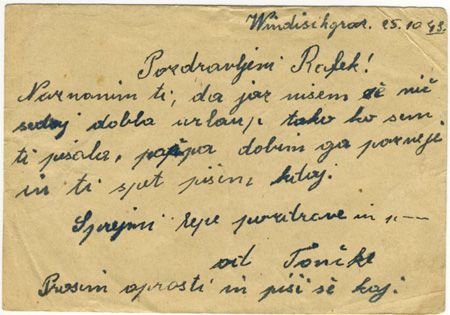 Windischgraz. 25.10.43.
Pozdravljeni Rafek!
Naznanim ti, da jaz nisem še nič
sedaj dobla urlaup tako ko sem
ti pisala, dobim ga pozneje
in ti spet pišem, kdaj.
Sprejmi lepe pozdrave in
od Tončke
Prosim oprosti in piši še kaj.